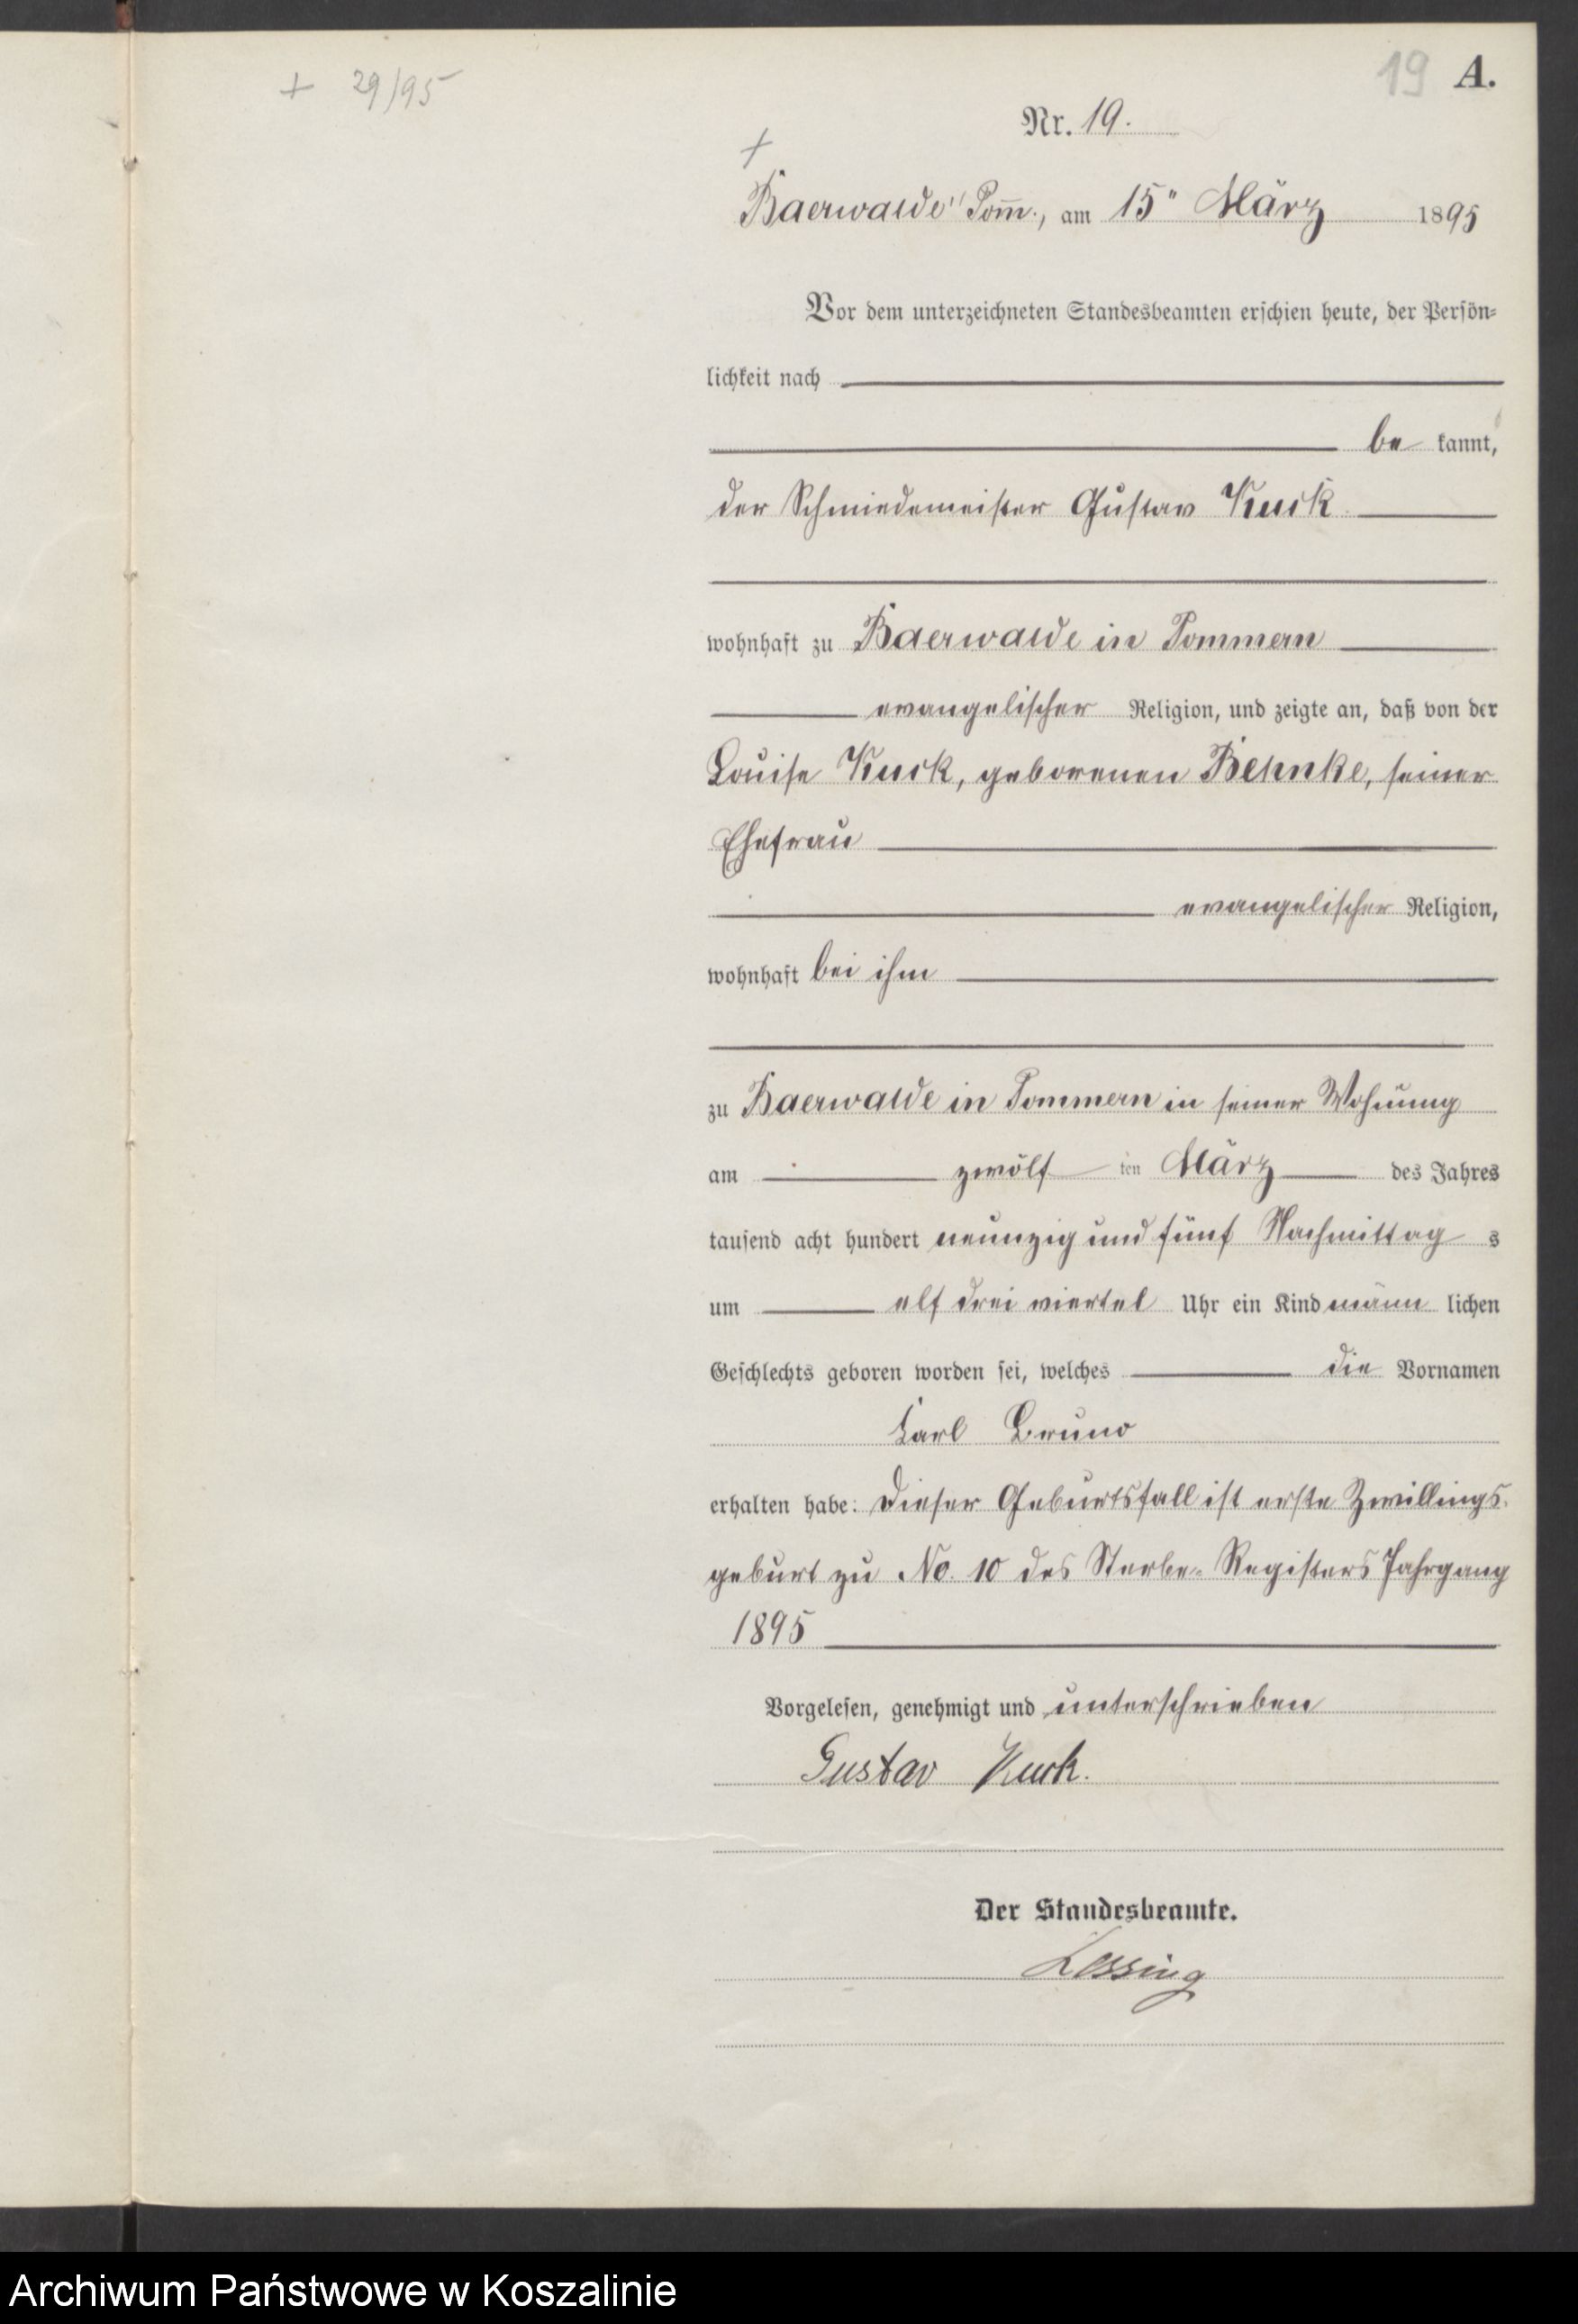 + 29/95
19 A.
Nr. 19.
+
Baerwalde Pom̅., am 15" März 1895
Vor dem unterzeichneten Standesbeamten erschien heute, der Persön-
lichkeit nach
be kannt,
der Schmiedemeister Gustav Kuck
wohnhaft zu Baerwalde in Pommern
evangelischer Religion, und zeigte an, daß von der
Louise Kuck, geborenen Behnke, seiner
Ehefrau
evangelischer Religion,
wohnhaft bei ihm
zu Baerwalde in Pommern in seiner Wohnung
am zwölf ten März des Jahres
tausend acht hundert neunzig und fünf Nachmittag s
um elf drei viertel Uhr ein Kind männ lichen
Geschlechts geboren worden sei, welches die Vornamen
Karl Bruno
erhalten habe: Dieser Geburtsfall ist erste Zwillings-
geburt zu No. 10 des Sterbe-Registers Jahrgang
1895
Vorgelesen, genehmigt und unterschrieben
Gustav Kuck.
Der Standesbeamte.
Lessing
Archiwum Państwowe w Koszalinie